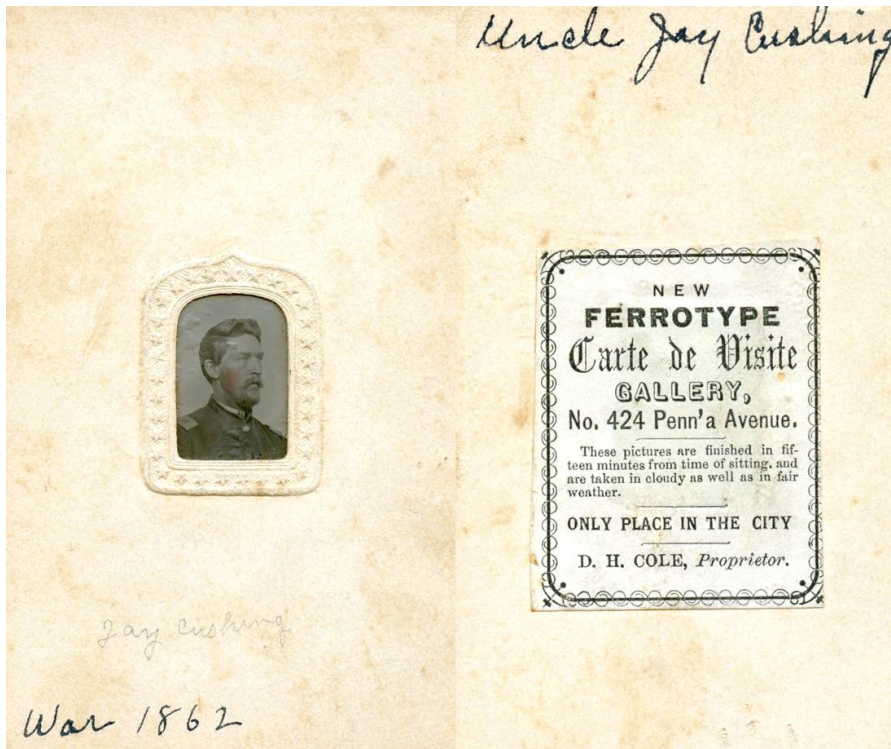 Jay Cushing
War 1862
Uncle Jay Cushing
NEW
FERROTYPE
Carte de Visite
GALLERY,
No. 424 Penn'a Avenue.
These pictures are finished in fif-
teen minutes from time of sitting, and
are taken in cloudy as well as in fair
weather.
ONLY PLACE IN THE CITY
D. H. COLE, Proprietor.